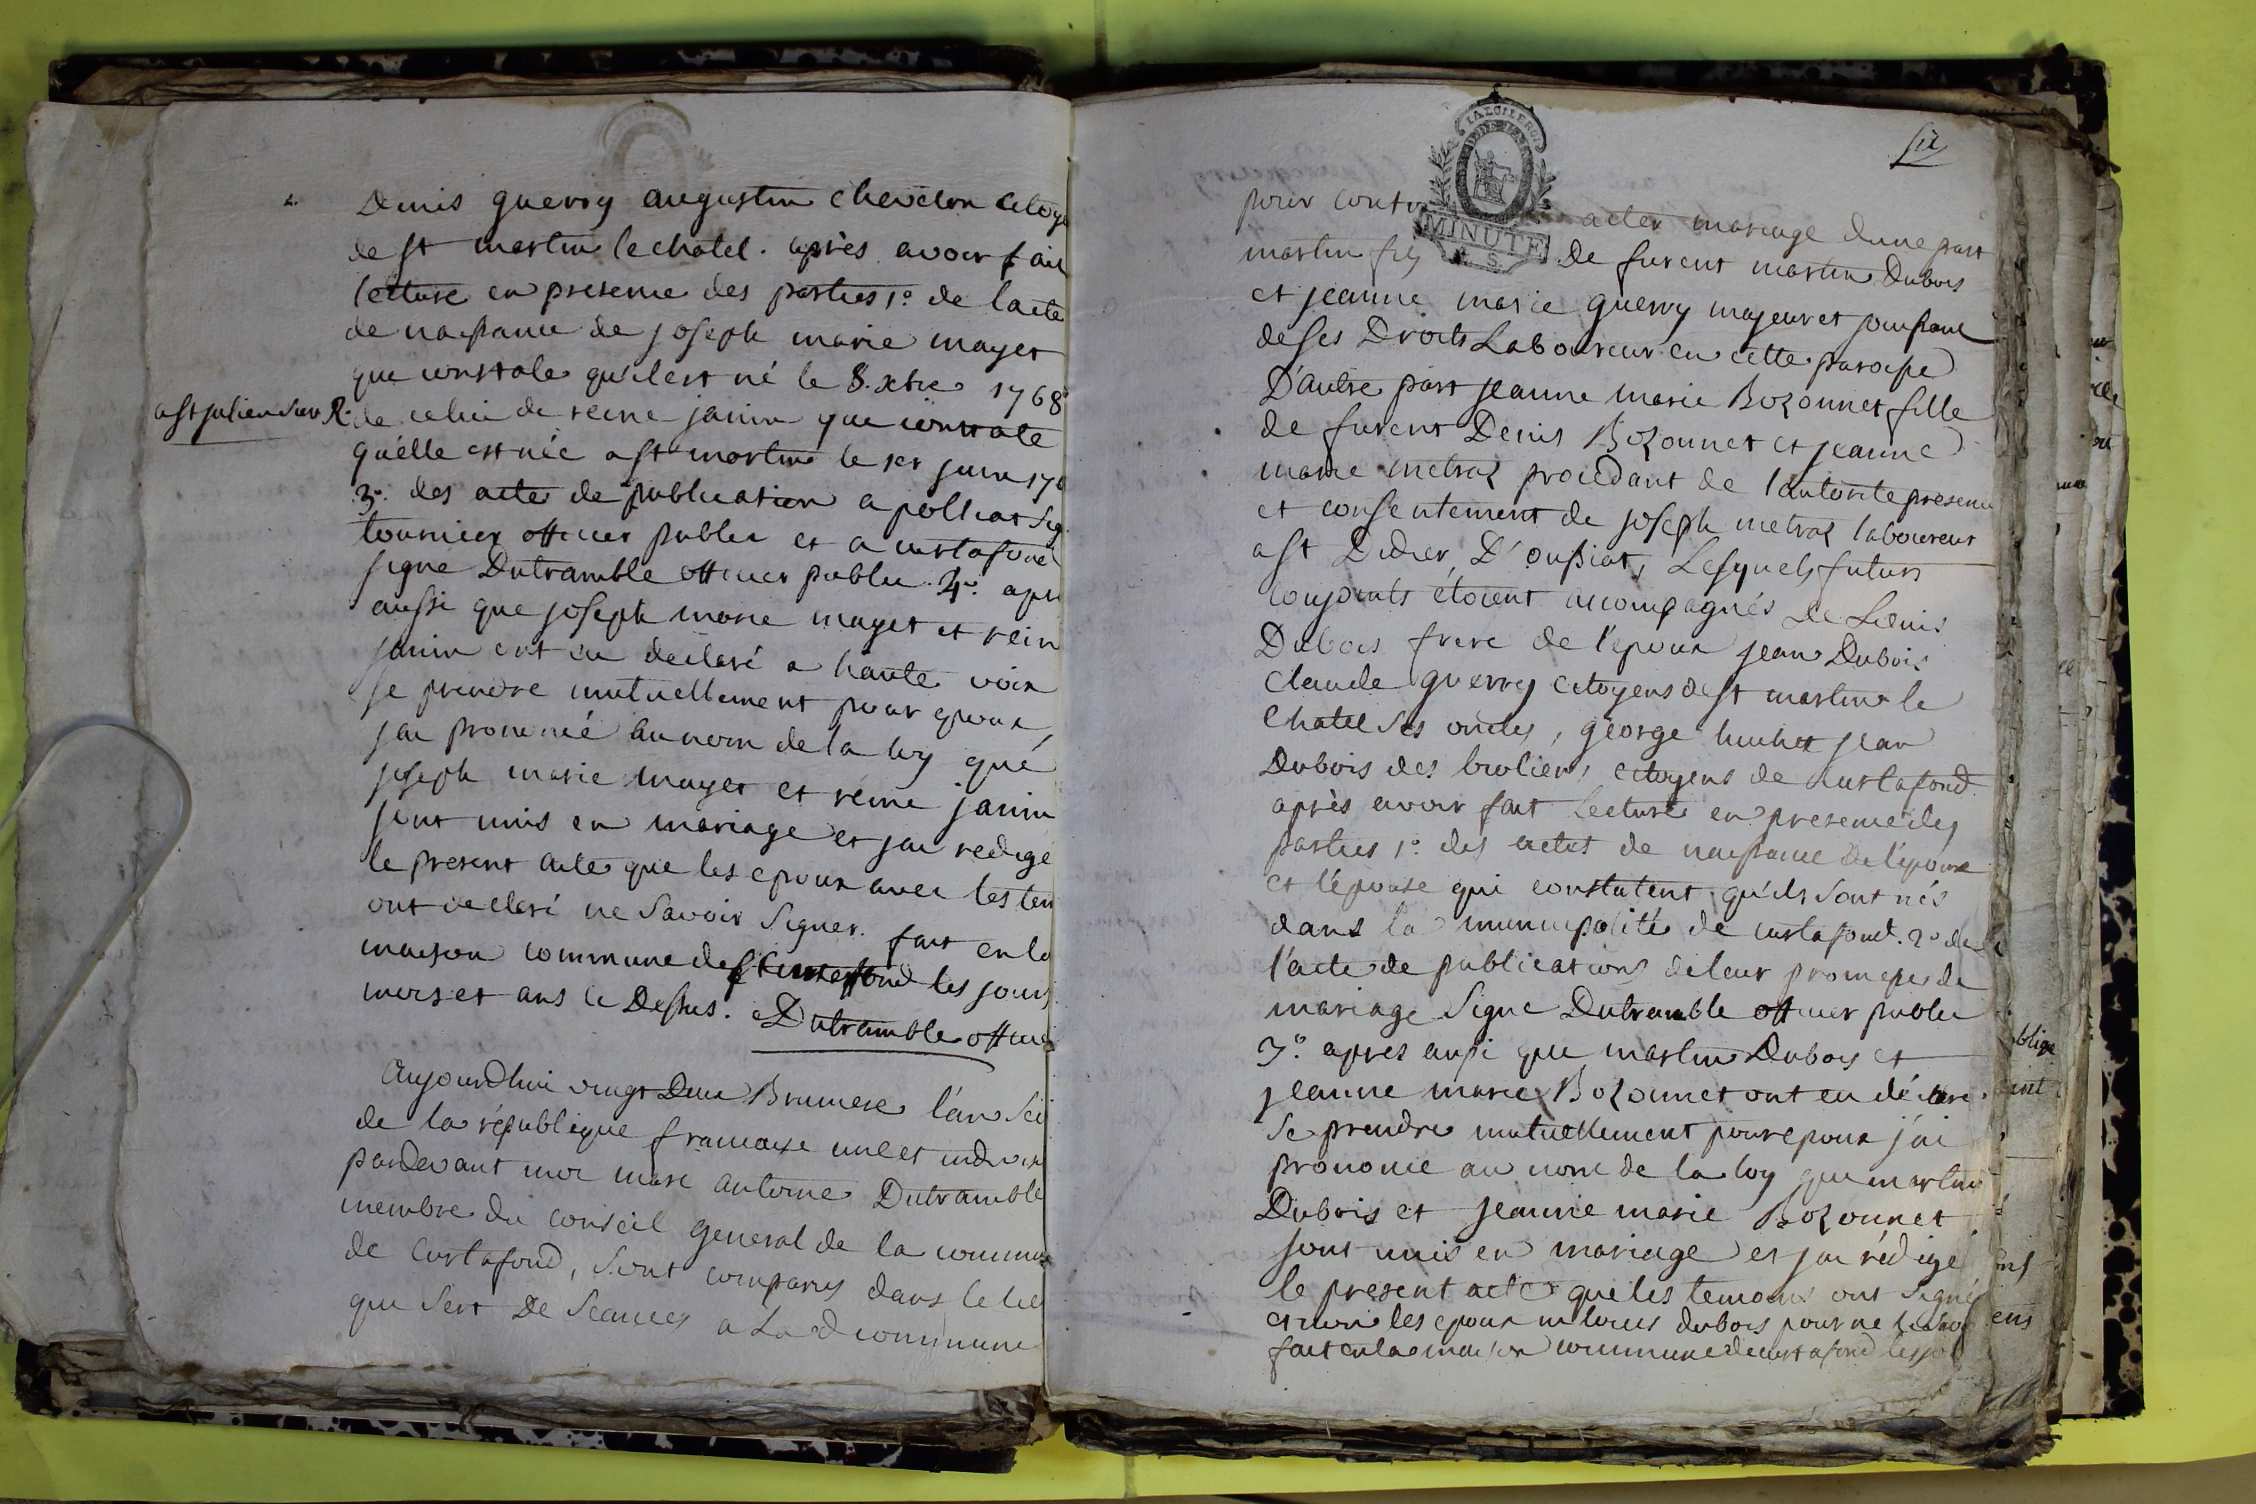 Denis guerry augustin chevelon citoye
de st martin le chatel. après avoir fait
lecture en presence des parties 1.º de lacte
de naissance de joseph marie mayet
que constate qu'il est né le 8. xbre 1768
a st julien sur R.
de celui de reine janin que constate
quélle est née a st martin le 1er juin 176
3º. des acte de publication a polliat sig
tournier officier public et a curtafond
signe Dutramble officier public. 4.º apre
aussi que joseph marie mayet et rein
janin ont eu declaré a haute voix
se prendre mutuellement pour epoux,
jai prononcé au nom de la loy qué
joseph marie mayet et reine janin
sont unis en mariage et jai redigé
le present acte que les epoux avec les tem
ont declaré ne savoir signer. fait en la
maison commune de curtafond les jours
mois et ans ci Dessus. Dutramble officie
Aujourdhui vingt Deux Brumere l'an sec
de la république francaise une et indivis
pardevant moi marc antoine Dutramble
membre du conseil general de la commun
de Curtafond, sont comparus dans le lieu
qui sert De Seances a La d commune
six
pour contracter mariage dune part
MINUTE
martin De furent martin Dubois
et jeanne marie guerry majeur et jouissant
de ses Droits Laboureur en cette paroisse
D'autre part jeanne marie Bozonnet fille
de furent Denis Bozonnet et jeanne
marie metraz procédant de l'autorite presence
et consentement de joseph metraz laboureur
a st Didier D'oussiat, Lesquels futurs
conjoints étoient accompagnés de Denis
Dubois frere de l'epoux jean Dubois
claude guerry citoyens de st martin le
chatel ses oncles, george huchet jean
Dubois des broliers, citoyens de curtafond
après avoir fait lecture en presence des
parties 1.º des actes de naissance de l'époux
et l'épouse qui constatent qu'ils sont nés
dans la municipalité de curtafond. 2.º de
l'acte de publications de leur promesse de
mariage signe Dutramble officier public
3.º apres aussi que martin Dubois et
jeanne marie Bozonnet ont eu déclare
se prendre mutuellement pour epoux j'ai
prononcé au nom de la loy que martin
Dubois et jeanne marie Bozonnet
sont unis en mariage et jai rédigé
le present acte que les temoins ont signé
et non les epoux ni louis dubois pour ne le savoir
fait en la maison commune de curtafond les jo